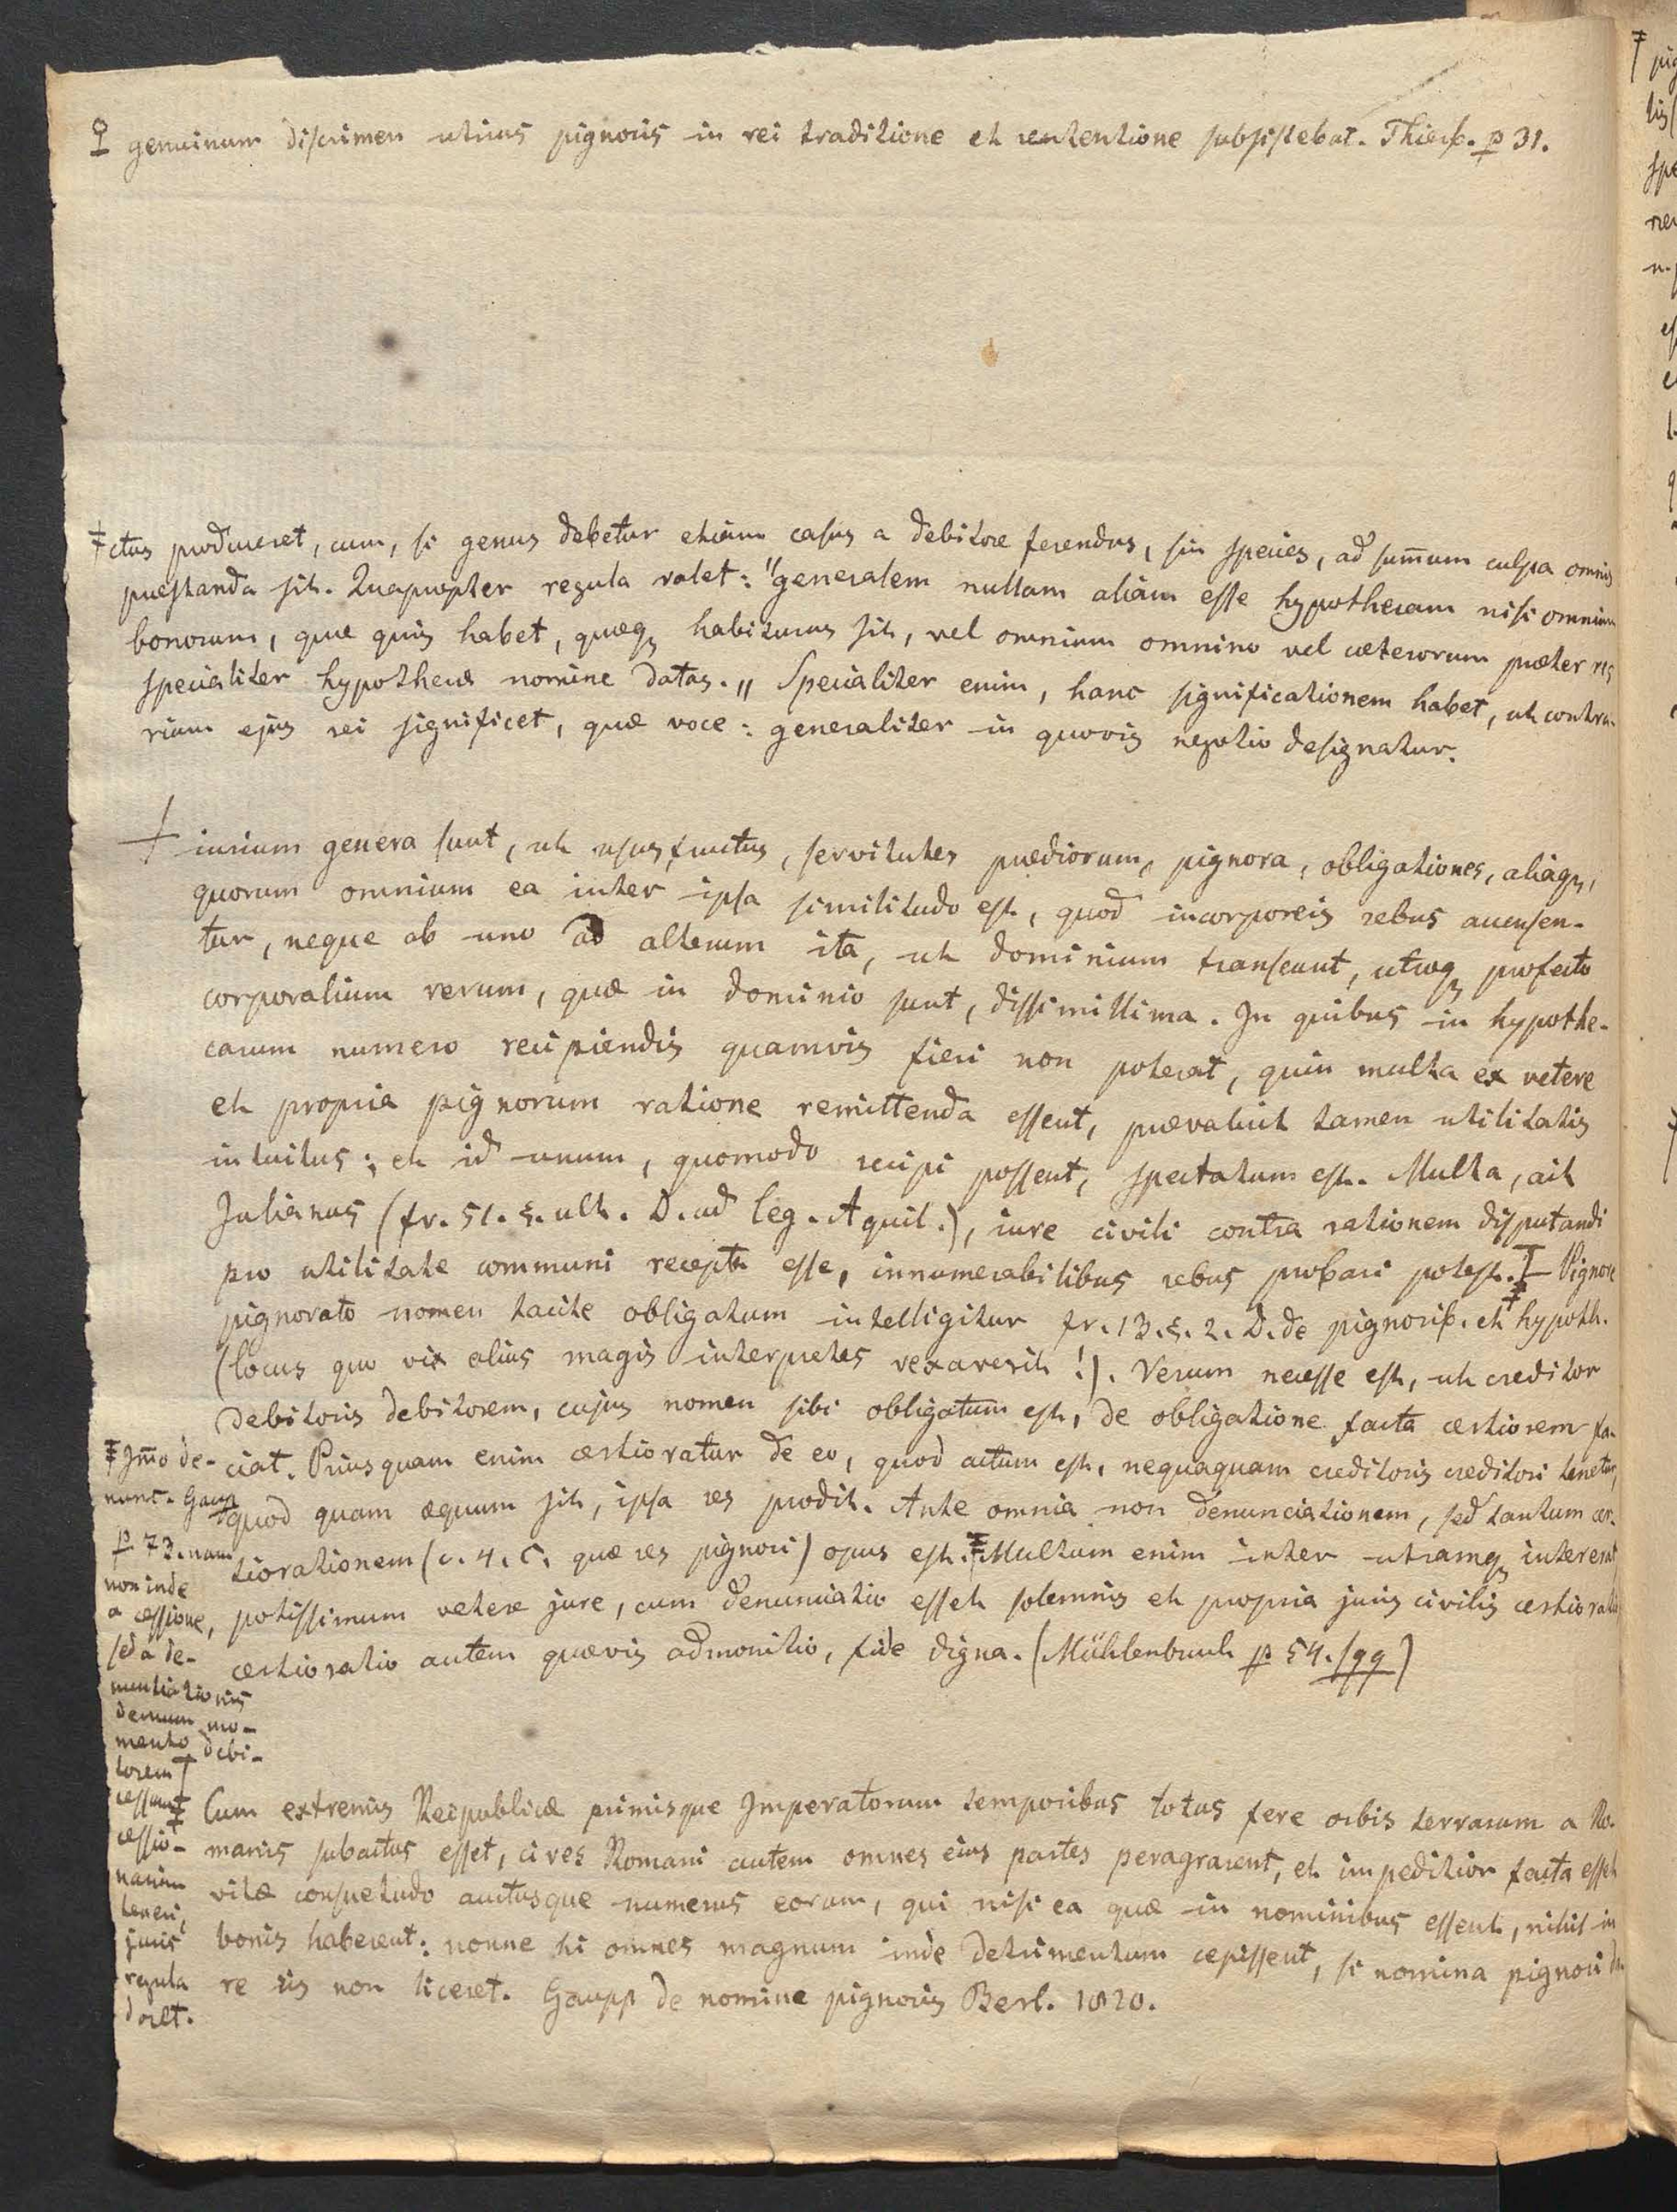 ♀ genuinum discrimen utrius pignoris in rei traditione et retentione subsistebat. Thierb. p 31.
‡ctus produceret, cum, si genus debetur etiam casus a debitore ferendus, sin species, ad sum̄um culpa omnis
praestanda sit. Quapropter regula valet: "generalem nullam aliam esse hypothecam nisi omnium
bonorum, quae quis habet, quaeq habiturus sit, vel omnium omnino vel caeterorum praeter res
specialiter hypothecae nomine datas." Specialiter enim, hanc significationem habet, ut contra-
rium ejus rei significet, quae voce: generaliter in quovis negotio designatur.
+ iurium genera sunt, ut usus fructus, servitutes praediorum, pignora, obligationes, aliaq,
quorum omnium ea inter ipsa similitudo est, quod incorporeis rebus accensen-
tur, neque ab uno ad alterum ita, ut dominium transeunt, utraq profecto
corporalium rerum, quae in dominio sunt, dissimillima. In quibus in hypothe-
carum numero recipiendis quamvis fieri non poterat, quin multa ex vetere
et propria pignorum ratione remittenda essent, praevaluit tamen utilitatis
intuitus; et id unum, quomodo recipi possent, spectatum est. Multa, ait
Julianus (fr. 51. §. ult. D. ad leg. Aquil.), iure civili contra rationem disputandi
pro utilitate communi recepta esse, innumerabilibus rebus probari potest. ‡ Pignore
pignorato nomen tacite obligatum intelligitur fr. 13. §. 2. D. de pignorib. et hypoth.
(locus quo vix alius magis interpretes vexaverit!). Verum necesse est, ut creditor
debitoris debitorem, cujus nomen sibi obligatum est, de obligatione facta certiorem fa-
ciat. Priusquam enim certioratur de eo, quod actum est, nequaquam creditoris creditori tenetur,
quod quam aequum sit, ipsa res prodit. Ante omnia non denunciationem, sed tantum cer-
tiorationem (c. 4. C. quae res pignori) opus est. ‡ Multum enim inter utramq intererat
potissimum vetere jure, cum denunciatio esset solemnis et propria juris civilis certioratio
certioratio autem quaevis admonitio, fide digna. (Mühlenbruch p 54. sqq)
‡ Im̄o de-
nunt. Gaup
p 73. nam
non inde
a cessione,
sed a de-
nuntiationis
demum mo-
mento debi-
torem
cessant
cessio-
narium
teneri,
juris
regula
docet.
‡ Cum extremis Reipublicae primisque Imperatorum temporibus totus fere orbis terrarum a Ro-
manis subactus esset, cives Romani autem omnes eius partes peragrarent, et impeditior facta esset
vitae consuetudo auctusque numerus eorum, qui nisi ea quae in nominibus essent, nihil in
bonis haberent: nonne hi omnes magnum inde detrimentum cepissent, si nomina pignori da-
re iis non liceret. Gaupp de nomine pignoris Berl. 1820.